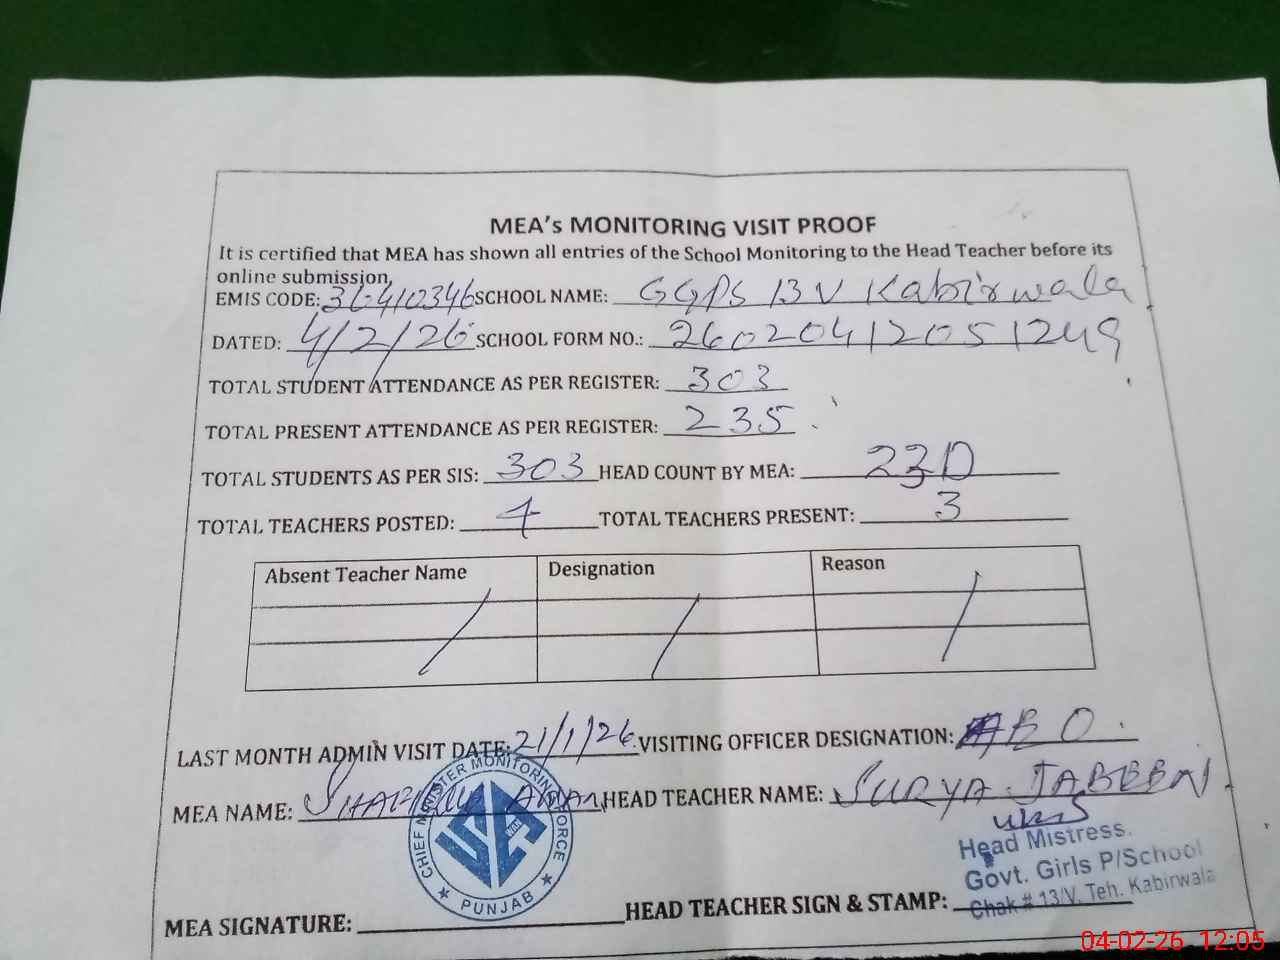 MEA's MONITORING VISIT PROOF
It is certified that MEA has shown all entries of the School Monitoring to the Head Teacher before its
online submission,
EMIS CODE: 36410346 SCHOOL NAME: GGPS 13V Kabirwala
DATED: 4/2/26 SCHOOL FORM NO.: 26020412051249
TOTAL STUDENT ATTENDANCE AS PER REGISTER: 303
TOTAL PRESENT ATTENDANCE AS PER REGISTER: 235
TOTAL STUDENTS AS PER SIS: 303 HEAD COUNT BY MEA: 230
TOTAL TEACHERS POSTED: 4 TOTAL TEACHERS PRESENT: 3
Absent Teacher Name Designation Reason
LAST MONTH ADMIN VISIT DATE: 21/1/26 VISITING OFFICER DESIGNATION:
MEA NAME: HEAD TEACHER NAME: SURYA JABEEN
CHIEF MINISTER MONITORING FORCE
PUNJAB
Head Mistress.
Govt. Girls P/School
Chak # 13/V, Teh. Kabirwala
MEA SIGNATURE: HEAD TEACHER SIGN & STAMP:
04-02-26 12:05